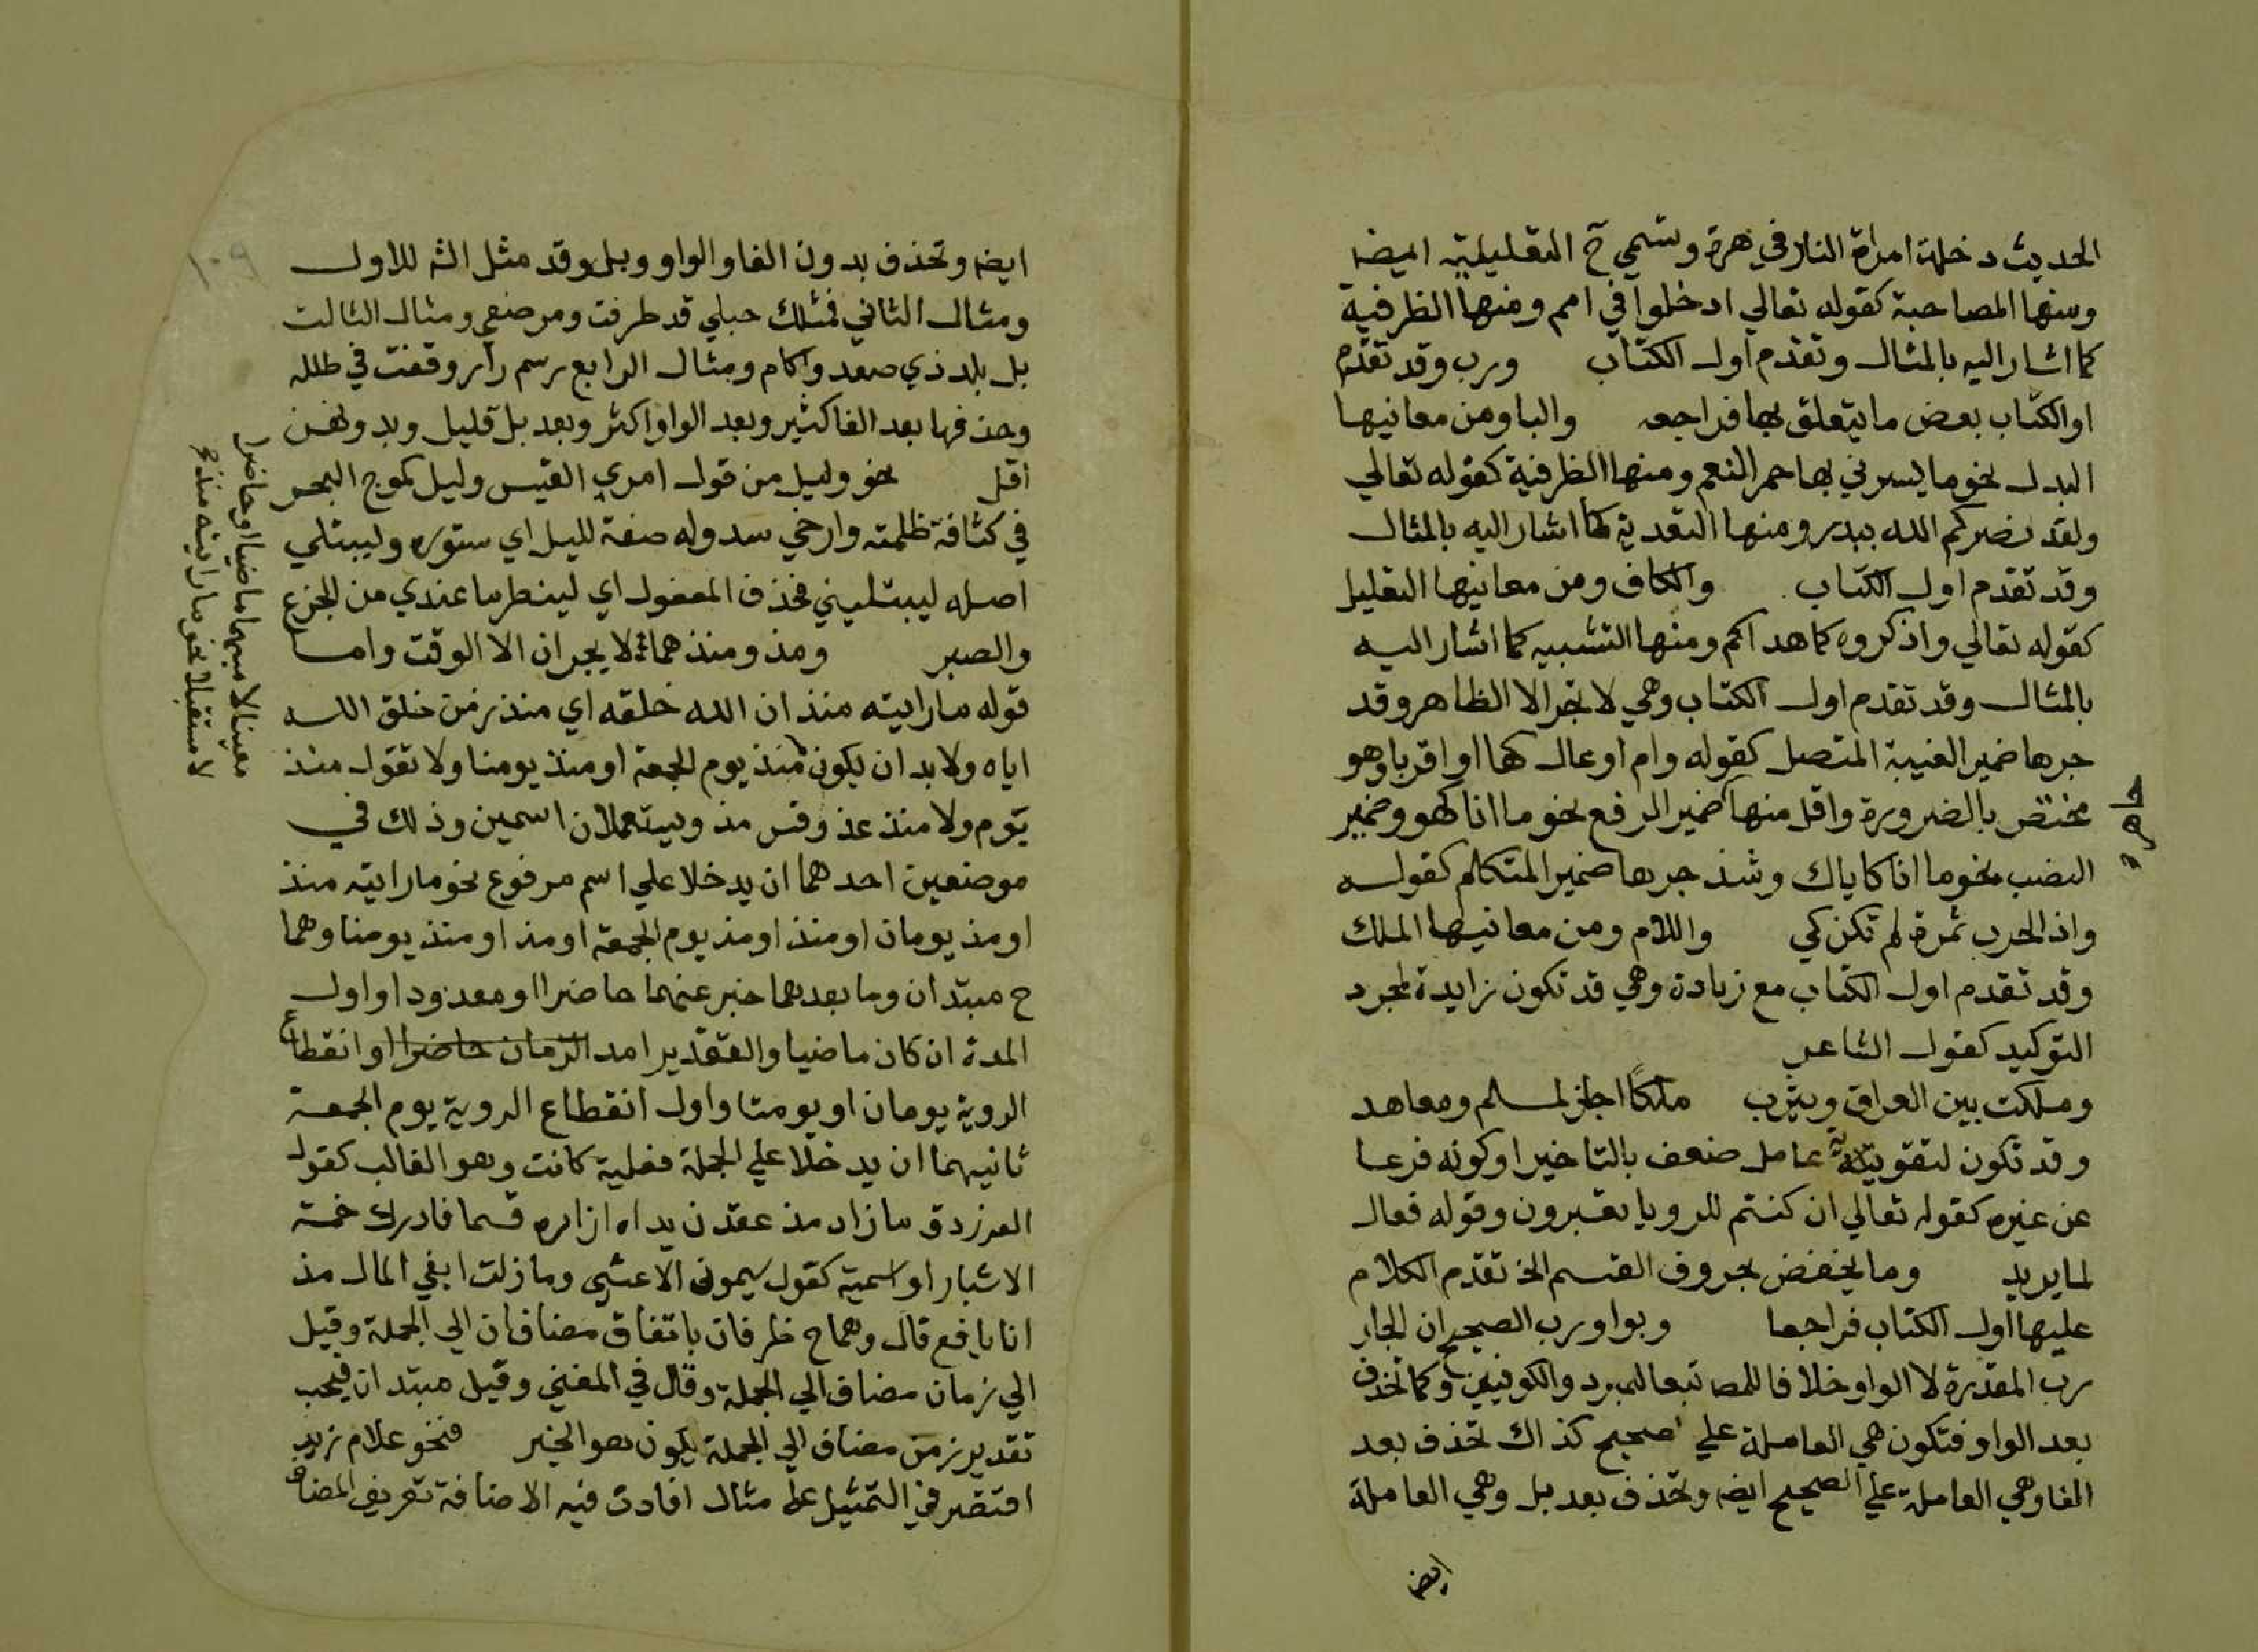 الحديث دخلت امراة النار في هرة وتسمي ح التعليلية ايضا
ومنها المصاحبة كقوله تعالي ادخلوا في امم ومنها الظرفية
كما اشار اليه بالمثال وتقدم اول الكتاب ورب وقد تقدم
او الكتاب بعض ما يتعلق بها فراجعه والبا ومن معانيها
البدل نحو ما يسرني بها حمر النعم ومنها الظرفية كقوله تعالي
ولقد نصركم الله ببدر ومنها التعدية كما اشار اليه بالمثال
وقد تقدم اول الكتاب والكاف ومن معانيها التعليل
كقوله تعالي واذكروه كما هداكم ومنها التشبيه كما اشار اليه
بالمثال وقد تقدم اول الكتاب وهي لا تجر الا الظاهر وقد
جرها ضمير الغيبة المتصل كقوله وام اوعال كها او اقربا وهو
مختص بالضرورة واقل منها ضمير الرفع نحو ما انا كهو وضمير
النصب نحو ما انا كاياك وشذ جرها ضمير المتكلم كقوله
واذ الحرب شمرة لم تكن كي واللام ومن معانيها الملك
وقد تقدم اول الكتاب مع زيادة وهي قد تكون زايدة لمجرد
التوكيد كقول الشاعر
وملكت بين العراق ويثرب ملكا اجاز لمسلم ومعاهد
وقد تكون لتقوية عامل ضعف بالتاخير او كونه فرعا
عن غيره كقوله تعالي ان كنتم للرويا تعبرون وقوله فعال
لما يريد وما يخفض بحروف القسم الخ تقدم الكلام
عليها اول الكتاب فراجعا وبواو رب الصحيح ان الجار
رب المقدرة لا الواو خلافا للمص تبعا للمبرد والكوفيين وكما تحذف
بعد الواو فتكون هي العاملة علي الصحيح كذاك تحذف بعد
الفا وهي العاملة علي الصحيح ايضا وتحذف بعد بل وهي العاملة
ايضا
ايضا وتحذف بدون الفا والواو وبل وقد مثل الش للاول
ومثال الثاني فمثلك حبلي قد طرقت ومرضع ومثال الثالث
بل بلد ذي صعد واكام ومثال الرابع رسم دار وقفت في طلله
وحذفها بعد الفا كثير وبعد الواو اكثر وبعد بل قليل وبدونهن
اقل نحو وليل من قول امري القيس وليل كموج البحر
في كثافة ظلمته وارخي سدوله صفة لليل اي ستوره وليبتلي
اصله ليبتليني فحذف المفعول اي لينظر ما عندي من الجزع
والصبر ومذ ومنذ هما لا يجران الا الوقت واما
قوله ما رايته منذ ان الله خلقه اي منذ زمن خلق الله
اياه ولا بد ان يكون منذ يوم الجمعة او منذ يومنا ولا تقول منذ
يوم ولا منذ غد وقس مذ ويستعملان اسمين وذلك في
موضعين احدهما ان يدخلا علي اسم مرفوع نحو ما رايته منذ
او مذ يومان او منذ او مذ يوم الجمعة او مذ او منذ يومنا وهما
ح مبتدان وما بعدهما خبر عنهما حاضرا او معدودا او اول
المدة ان كان ماضيا والتقدير امد الزمان حاضرا او انقطاع
الروية يومان او يومنا واول انقطاع الروية يوم الجمعة
ثانيهما ان يدخلا علي الجملة فعلية كانت وهو الغالب كقول
الفرزدق ما زاد مذ عقدن يداه ازاره قسما فادرك خمسة
الاشبار او اسمية كقول ميمون الاعشي وما زلت ابغي المال مذ
انا يافع قال وهما ح ظرفان باتفاق مضافان الي الجملة وقيل
الي زمان مضاف الي الجملة وقال في المغني وقيل مبتدان فيجب
تقدير زمن مضاف الي الجملة يكون هو الخبر فنحو غلام زيد
اقتصر في التمثيل علي مثال افادت فيه الاضافة تعريف المضاف
معينا لا مبهما ماضيا او حاضرا
لا مستقبلا نحو ما رايته منذ
١٠٩